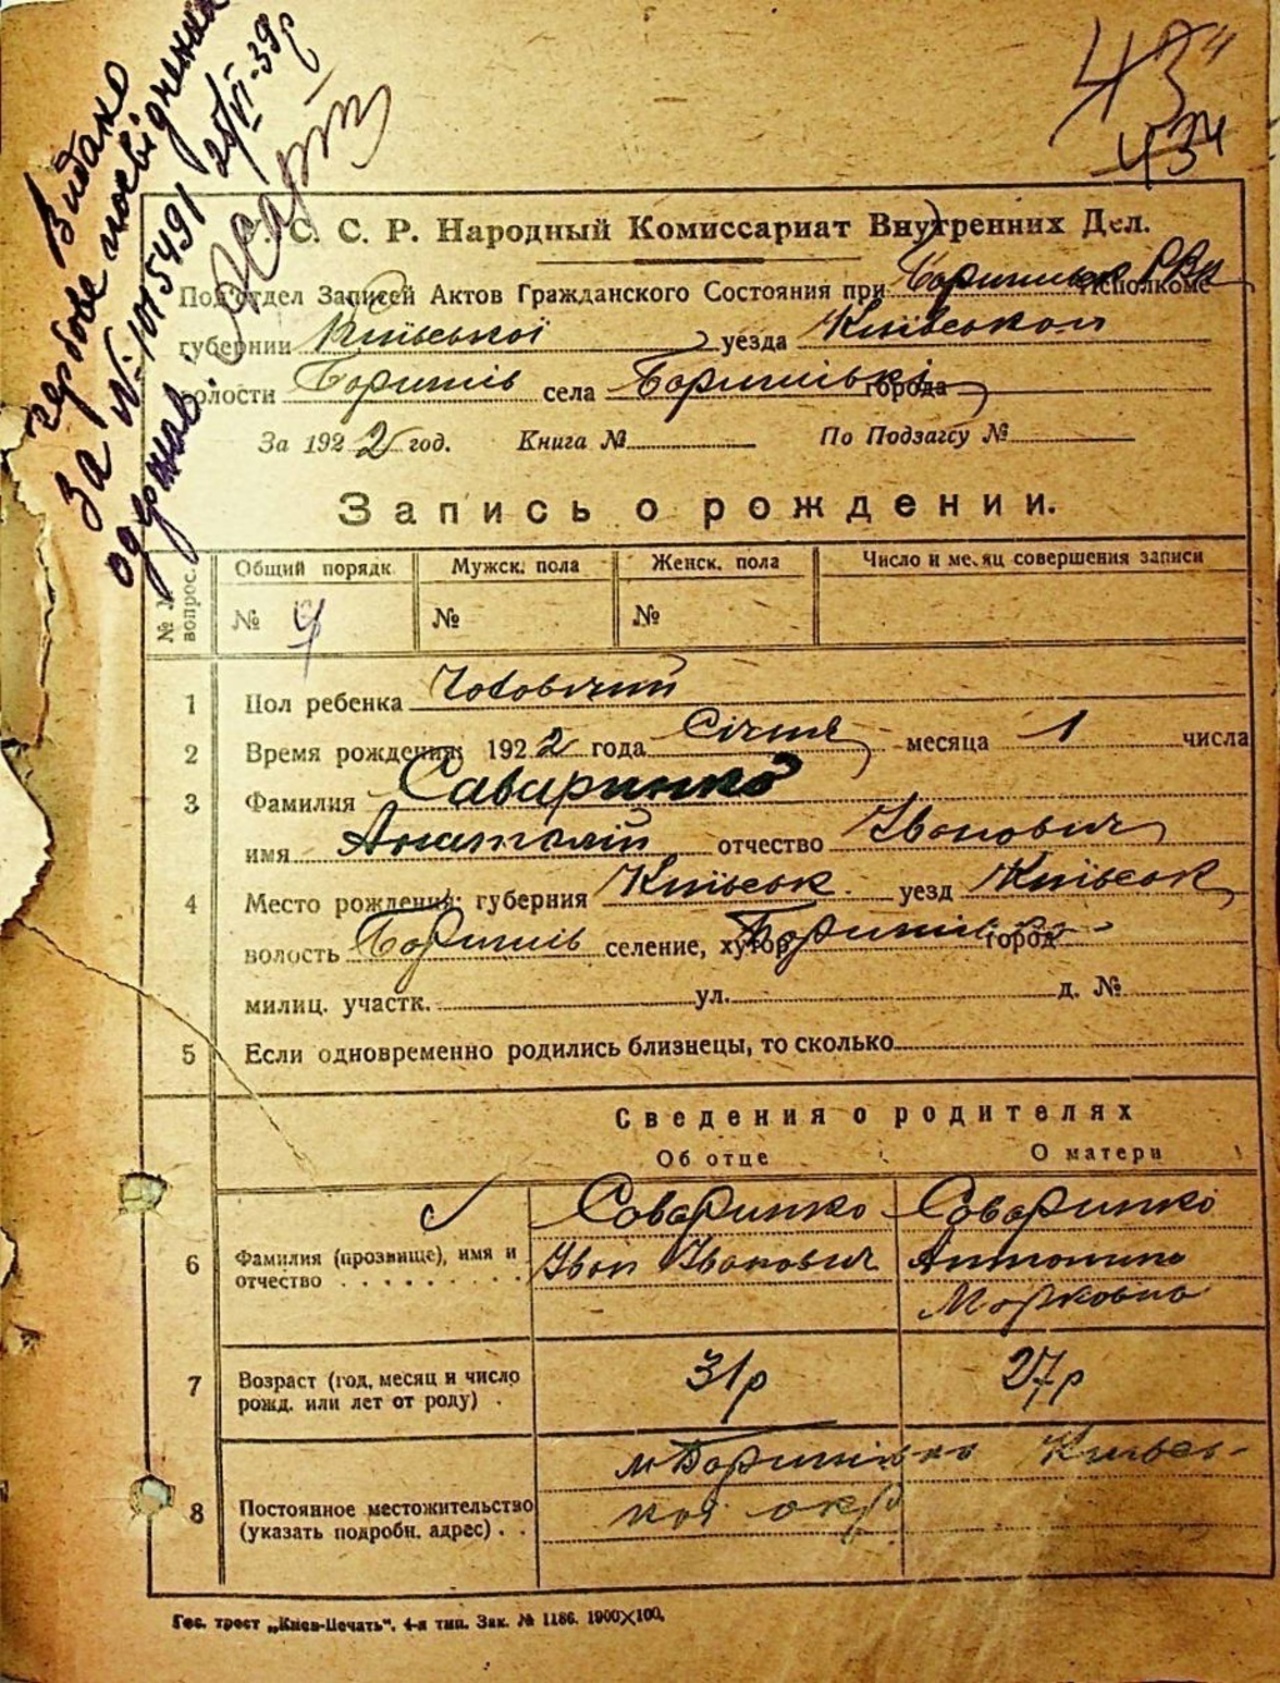 Видано
гербове посвідчення
За № 1015491 25/VI-39р
одержав:
43
434
С. С. Р. Народный Комиссариат Внутренних Дел.
Подотдел Записей Актов Гражданского Состояния при Исполкоме
губернии Київської уезда Київского
волости Боришпіль села города
За 1922 год. Книга № По Подзагсу №
Запись о рождении.
№ № вопрос. Общий порядк Мужск. пола Женск. пола Число и месяц совершения записи
№ № №
1 Пол ребенка Чоловічий
2 Время рождения: 1922 года Січня месяца 1 числа
3 Фамилия
имя Анатолій отчество Іванович
4 Место рождения: губерния Київськ. уезд Київськ
волость селение, хутор город
милиц. участк. ул. д. №
5 Если одновременно родились близнецы, то сколько
Сведения о родителях
Об отце О матери
6 Фамилия (прозвище), имя и отчество
Іван Іванович Антонина
Марковна
7 Возраст (год, месяц и число рожд. или лет от роду) . 31р 27р
8 Постоянное местожительство (указать подробн. адрес) . .
кої окр
Гос. трест „Киев-Печать". 4-я тип. Зак. № 1186. 1900×100.